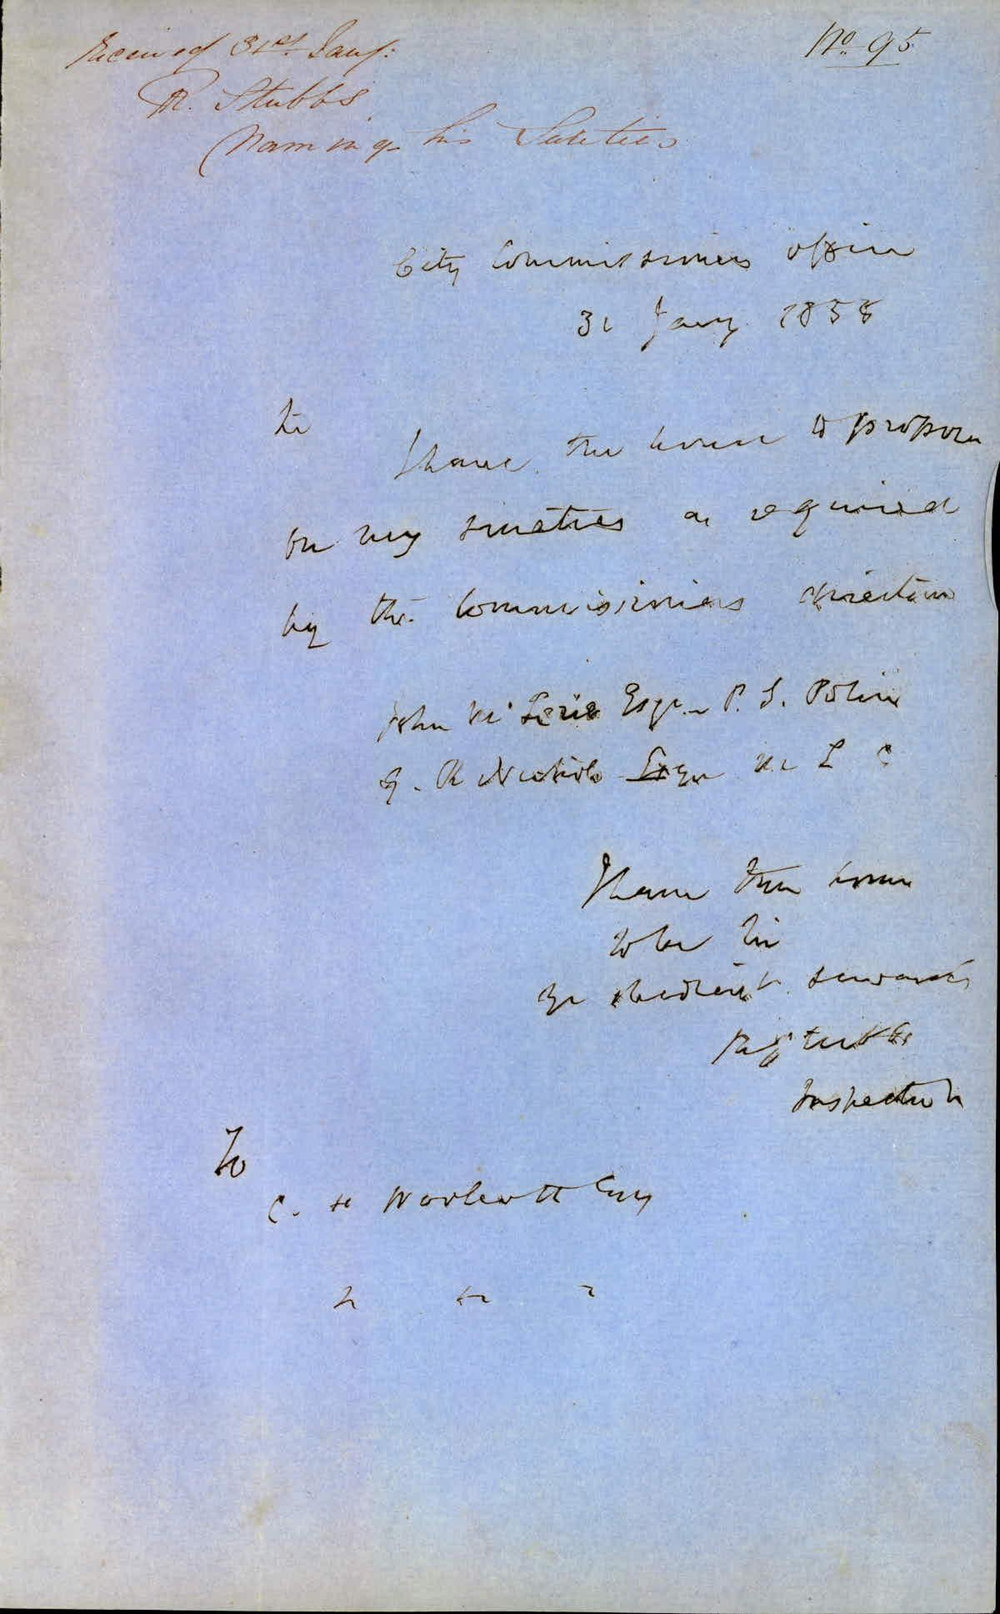 Received 31st Jany:
No. 95
R. Stubbs
Naming his Sureties
City Commissioners office
31 Jany 1858
Sir
I have the honor to propose
on my sureties as required
by the Commissioners direction
John Esqr P. S. Police
G. R. Nichols Esqr M L C
I have the honor
to be Sir
yr obedient servant
R Stubbs
Inspector
To
C. H Woolcott Esq